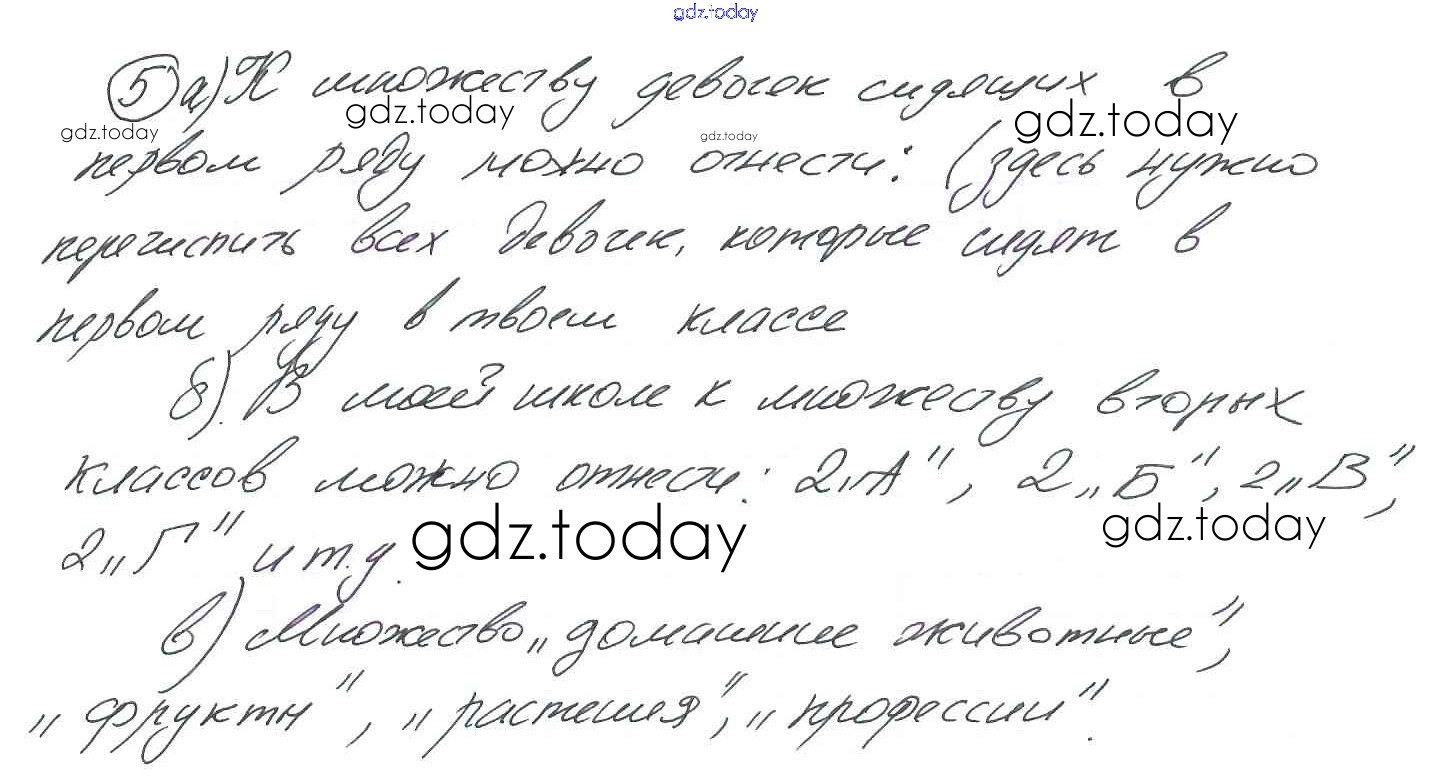 gdz.today
5 а) К множеству девочек сидящих в
gdz.today gdz.today gdz.today gdz.today
первом ряду можно отнести: (здесь нужно
перечислить всех девочек, которые сидят в
первом ряду в твоем классе
б). В моей школе к множеству вторых
классов можно отнести: 2„А", 2„Б", 2„В",
gdz.today
2„Г" и т.д. gdz.today
в) Множество „домашние животные",
„фрукты", „растения", „профессии".